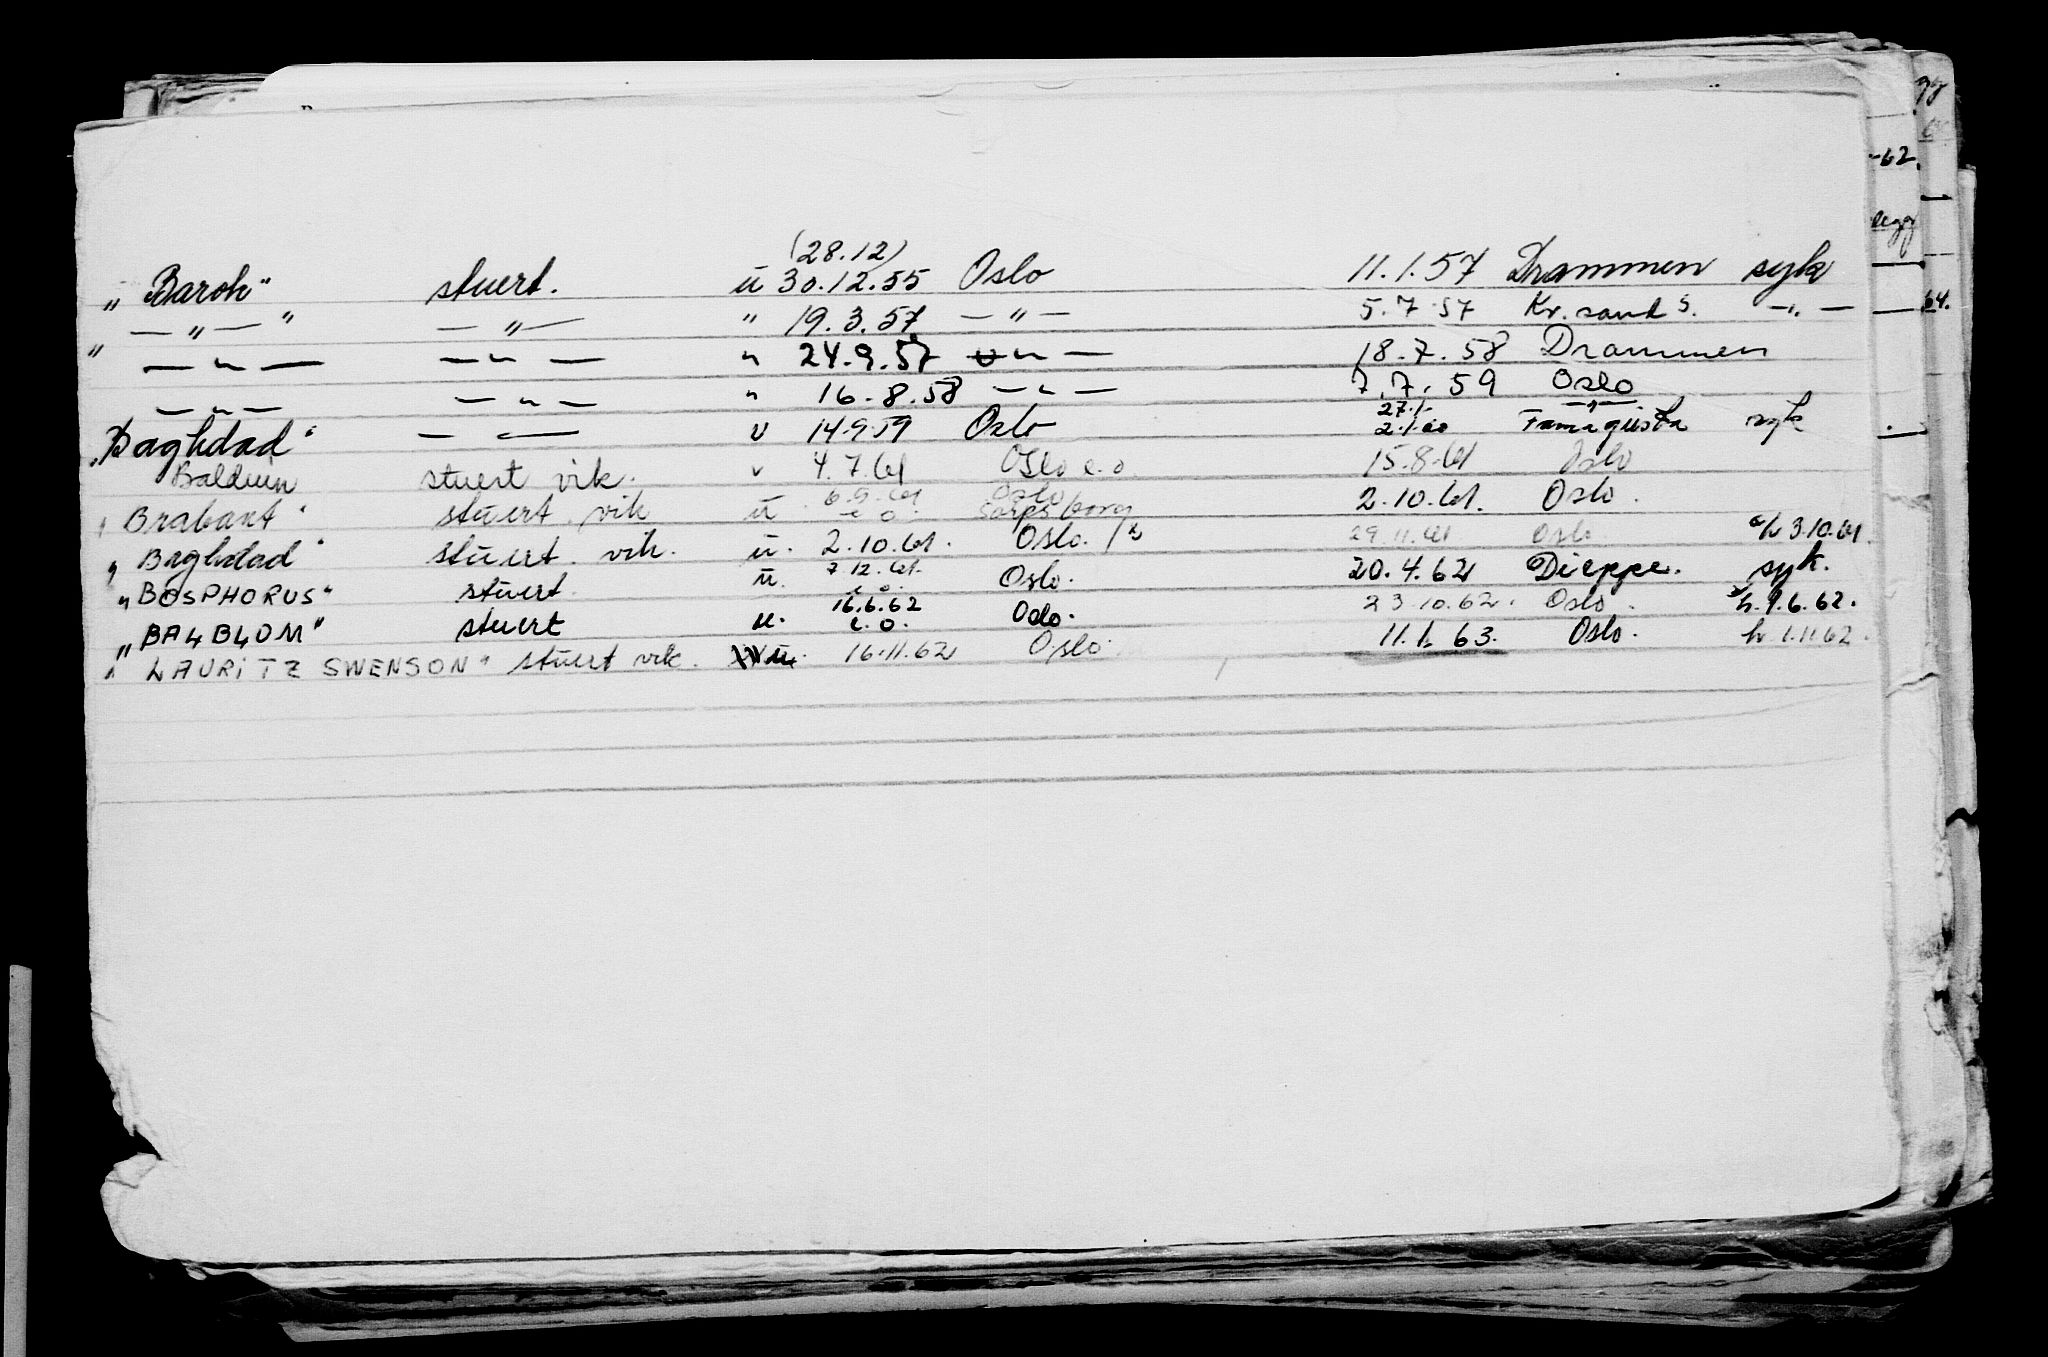 (28.12)
„ Baroh" stuert. ü 30.12.55 Oslo 11.1.57 Drammen syk
— " — " — " — " 19.3.57 — " — 5.7.57 Kr.sand S. — " —
" — " — — " — " 24.9.57 — " — 18.7.58 Drammen
— " — — " — " 16.8.58 — " — 7.7.59 Oslo
„Baghdad" — " — u 14.9.59 Oslo 27/1- 2.1.60 Famagusta syk
Balduin stuert vik. " 4.7.61 Oslo e.o. 15.8.61 Oslo
„ Brabant" stuert. vik ü 6.9.61 e.o. Oslo Sarpsborg 2.10.61. Oslo.
„ Baghdad" stuert. vik. ü. 2.10.61. Oslo. 29.11.61 Oslo 3.10.61.
„ BOSPHORUS" stuert. ü. 7.12.61. e.o. Oslo. 20.4.62 Dieppe. syk.
„ BALBLOM" stuert u. 16.6.62 e.o. Oslo. 23.10.62. Oslo. h. 9.6.62.
„ LAURITZ SWENSON" stuert vik. ü. 16.11.62 Oslo 11.1.63. Oslo. h. 1.11.62.
-62.
64.